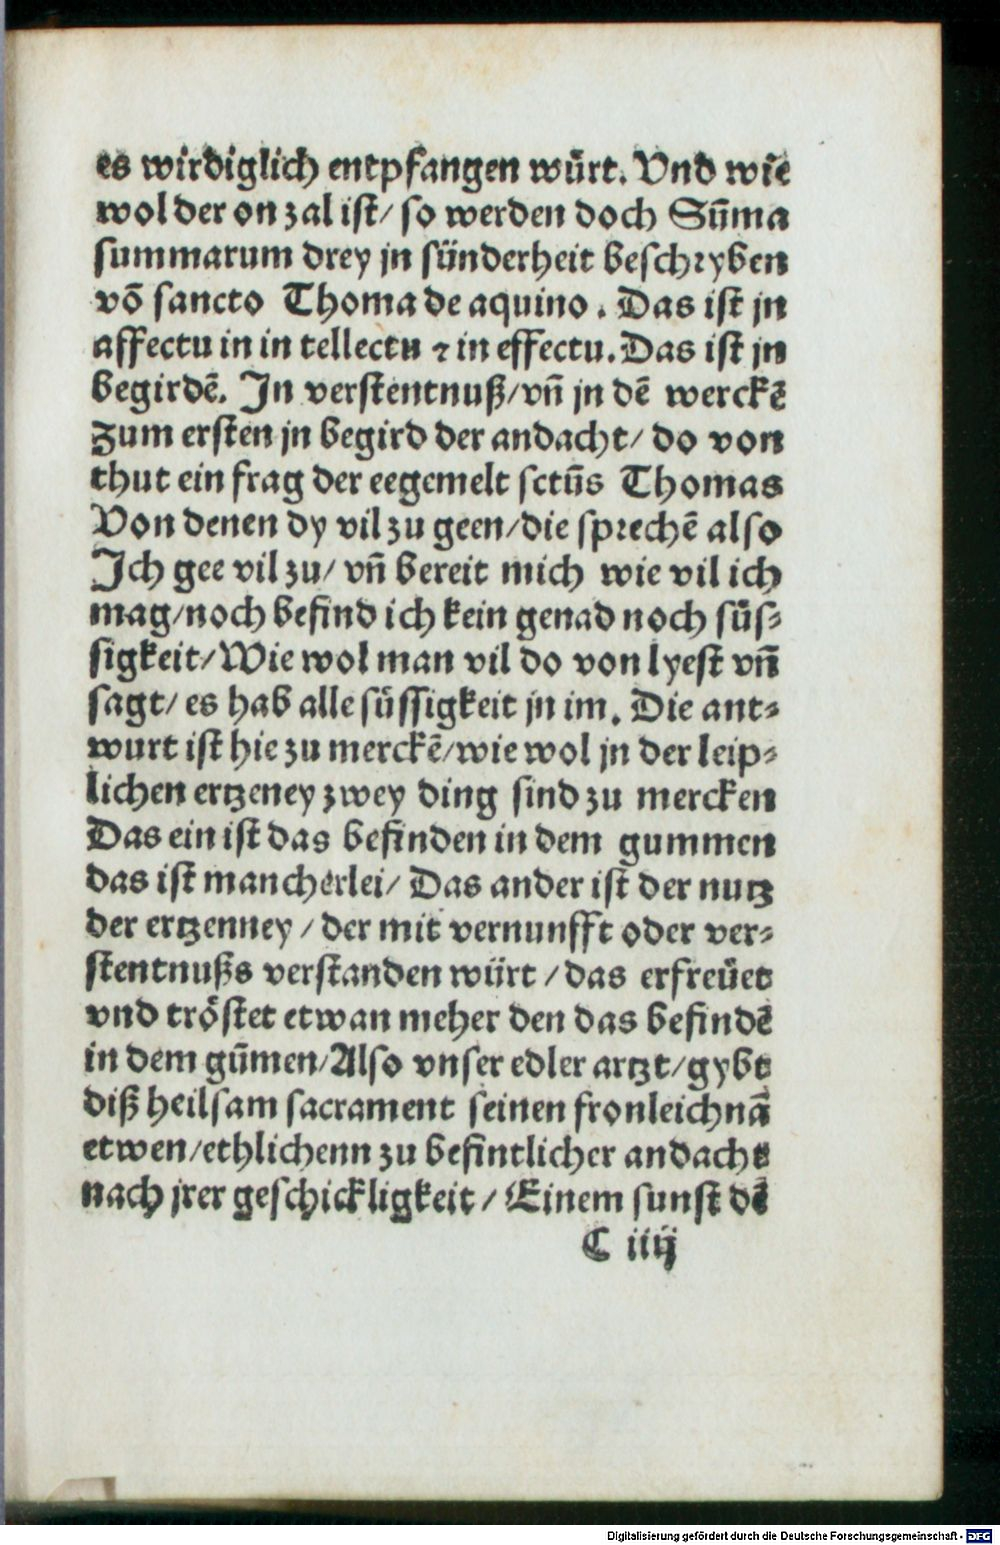 es wirdiglich entpfangen würt. Vnd wie
wol der on zal ist/ so werden doch Sum̄a
summarum drey jn sünderheit beschryben
vō sancto Thoma de aquino. Das ist jn
affectu in in tellectu ⁊ in effectu. Das ist jn
begirdē. In verstentnuß/ vn̄ jn dē werckē
Zum ersten jn begird der andacht/ do von
thut ein frag der eegemelt sctūs Thomas
Von denen dy vil zu geen/ die sprechē also
Ich gee vil zu/ vn̄ bereit mich wie vil ich
mag/ noch befind ich kein genad noch süs⸗
sigkeit/ Wie wol man vil do von lyest vn̄
sagt/ es hab alle süssigkeit jn im. Die ant⸗
wurt ist hie zu merckē/ wie wol jn der leip⸗
lichen ertzeney zwey ding sind zu mercken
Das ein ist das befinden in dem gummen
das ist mancherlei/ Das ander ist der nutz
der ertzenney / der mit vernunfft oder ver⸗
stentnußs verstanden würt / das erfreüet
vnd tröstet etwan meher den das befindē
in dem gūmen/ Also vnser edler artzt/ gybt
diß heilsam sacrament seinen fronleichnā
etwen/ ethlichenn zu befintlicher andacht
nach jrer geschickligkeit / Einem sunst dē
C iiij
Digitalisierung gefördert durch die Deutsche Forschungsgemeinschaft - DFG